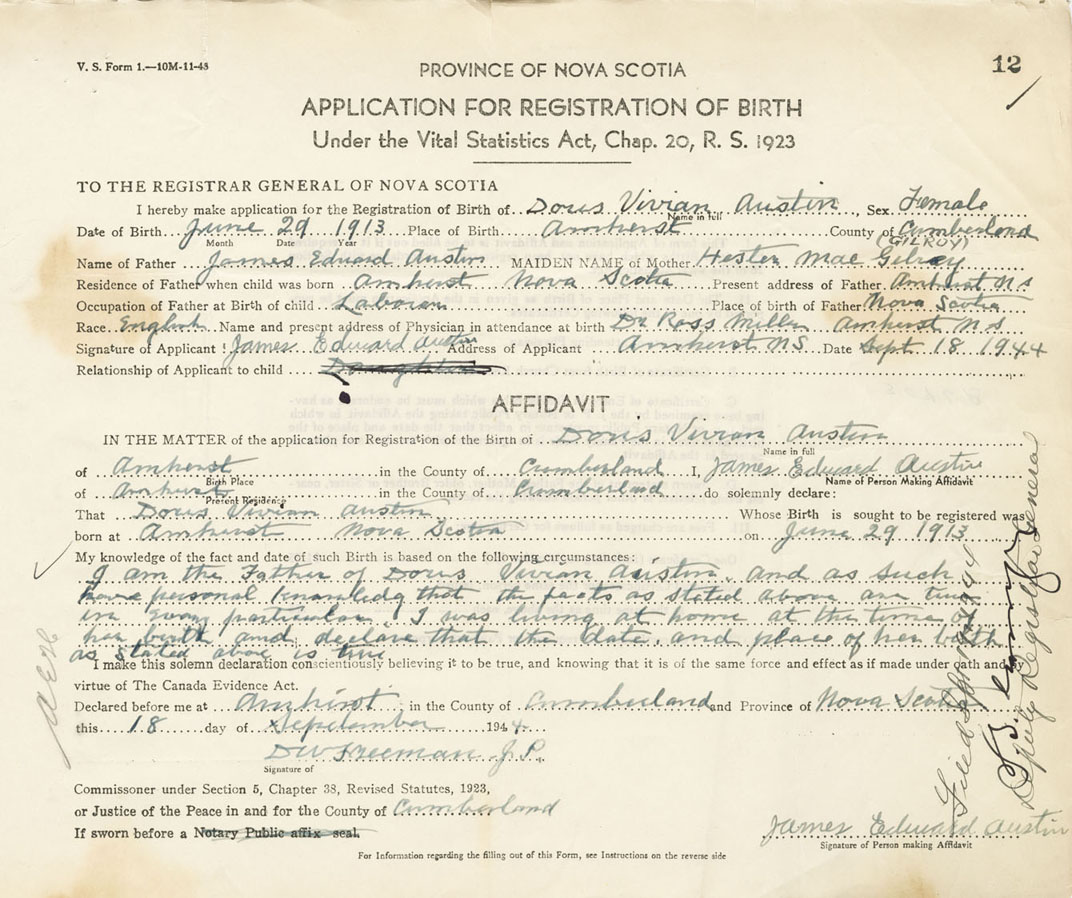 V. S. Form 1.—10M-11-43
12
PROVINCE OF NOVA SCOTIA
APPLICATION FOR REGISTRATION OF BIRTH
Under the Vital Statistics Act, Chap. 20, R. S. 1923
TO THE REGISTRAR GENERAL OF NOVA SCOTIA
I hereby make application for the Registration of Birth of Doris Vivian Austin, Sex Female
Name in full
Date of Birth June 29 1913 Place of Birth Amherst County of Cumberland
Month Date Year (GILROY)
Name of Father James Edward Austin MAIDEN NAME of Mother Hester Mae Gilroy
Residence of Father when child was born Amherst Nova Scotia Present address of Father Amherst N S
Occupation of Father at Birth of child Laborer Place of birth of Father Nova Scotia
Race English Name and present address of Physician in attendance at birth Dr Ross Miller Amherst N S
Signature of Applicant James Edward Austin Address of Applicant Amherst NS Date Sept 18 1944
Relationship of Applicant to child Daughter
AFFIDAVIT
IN THE MATTER of the application for Registration of the Birth of Doris Vivian Austin
Name in full
of Amherst in the County of Cumberland I, James Edward Austin
Birth Place Name of Person Making Affidavit
of Amherst in the County of Cumberland do solemnly declare:
Present Residence
That Doris Vivian Austin Whose Birth is sought to be registered was
born at Amherst Nova Scotia on June 29 1913
My knowledge of the fact and date of such Birth is based on the following circumstances:
I am the Father of Doris Vivian Austin. And as such
have personal knowledg that the facts as stated above are true
in every particular. I was living at home at the time of
her birth and declare that the date and place of her birth
as stated above is true
I make this solemn declaration conscientiously believing it to be true, and knowing that it is of the same force and effect as if made under oath and
virtue of The Canada Evidence Act.
Declared before me at Amherst in the County of Cumberland and Province of Nova Scotia
this 18 day of September 1944
DW Freeman J.P.
Signature of
Commissoner under Section 5, Chapter 38, Revised Statutes, 1923,
or Justice of the Peace in and for the County of Cumberland
If sworn before a Notary Public affix seal.
James Edward Austin
Signature of Person making Affidavit
For Information regarding the filling out of this Form, see Instructions on the reverse side
Filed
Deputy Registrar General